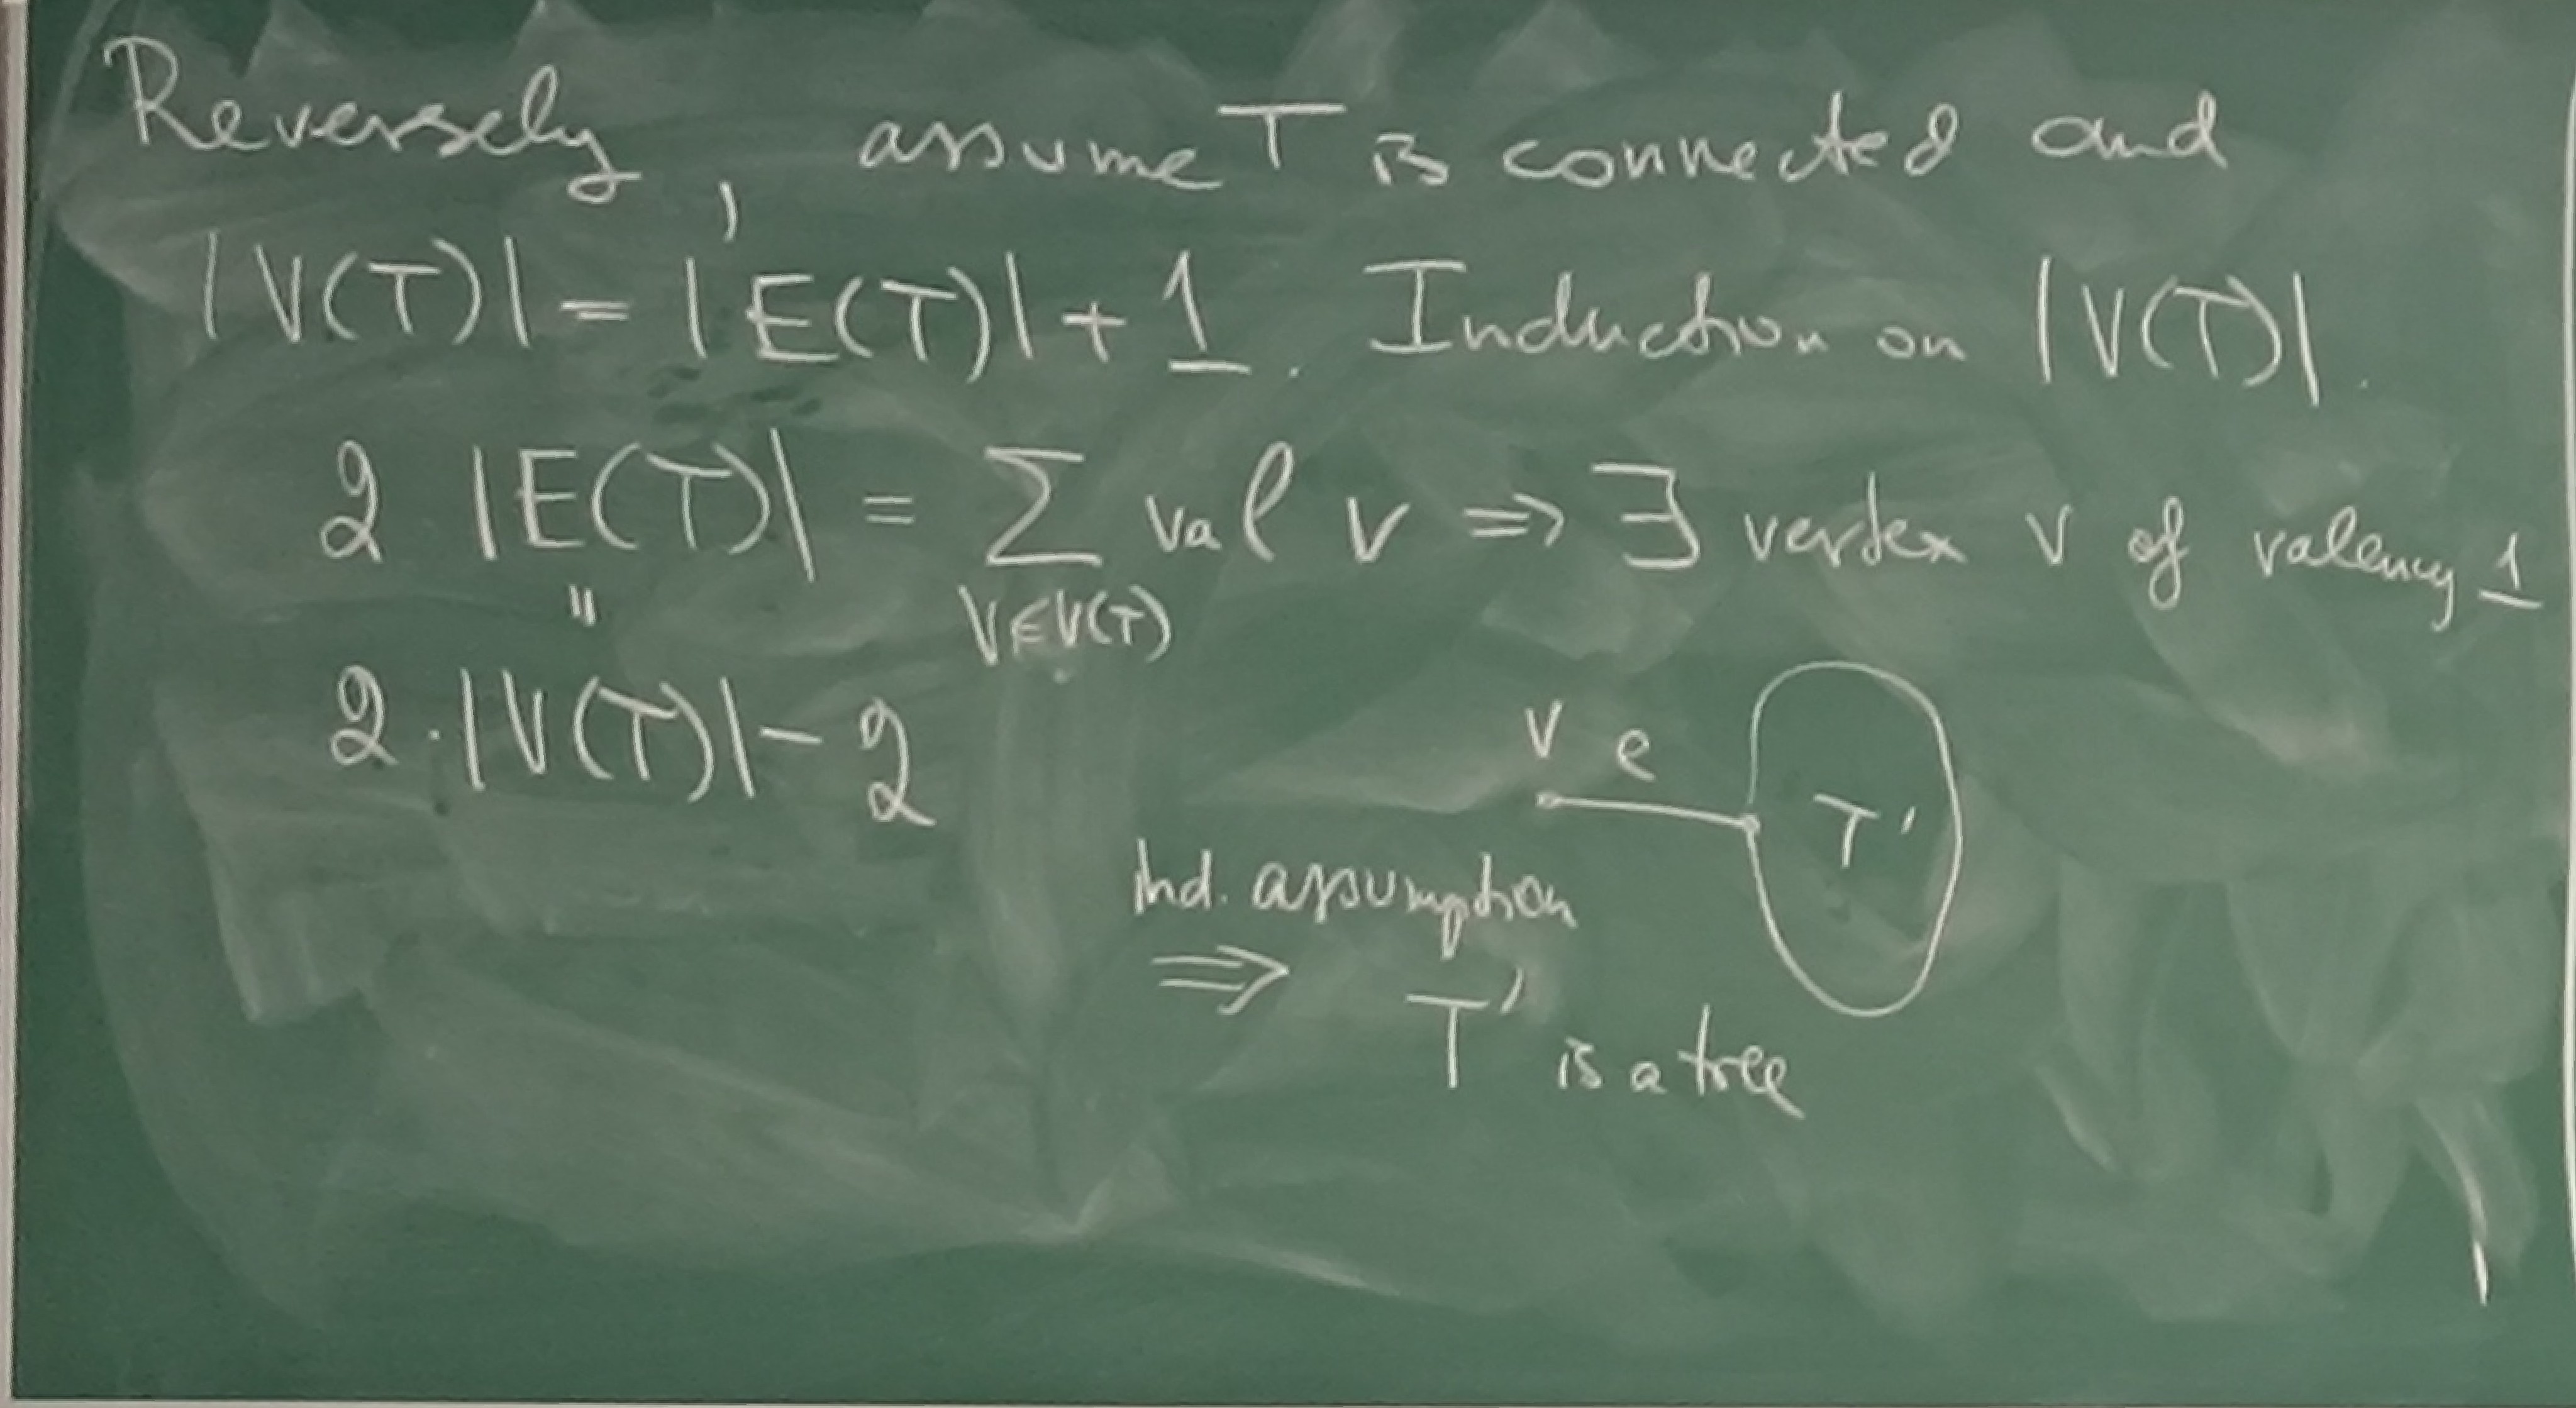 Reversely, assume T is connected and
|V(T)| = |E(T)| + 1. Induction on |V(T)|.
2 |E(T)| = ∑ val v ⇒ ∃ vertex v of valency 1
" v∈V(T)
2·|V(T)| - 2
v e
T'
Ind. assumption
⇒ T' is a tree